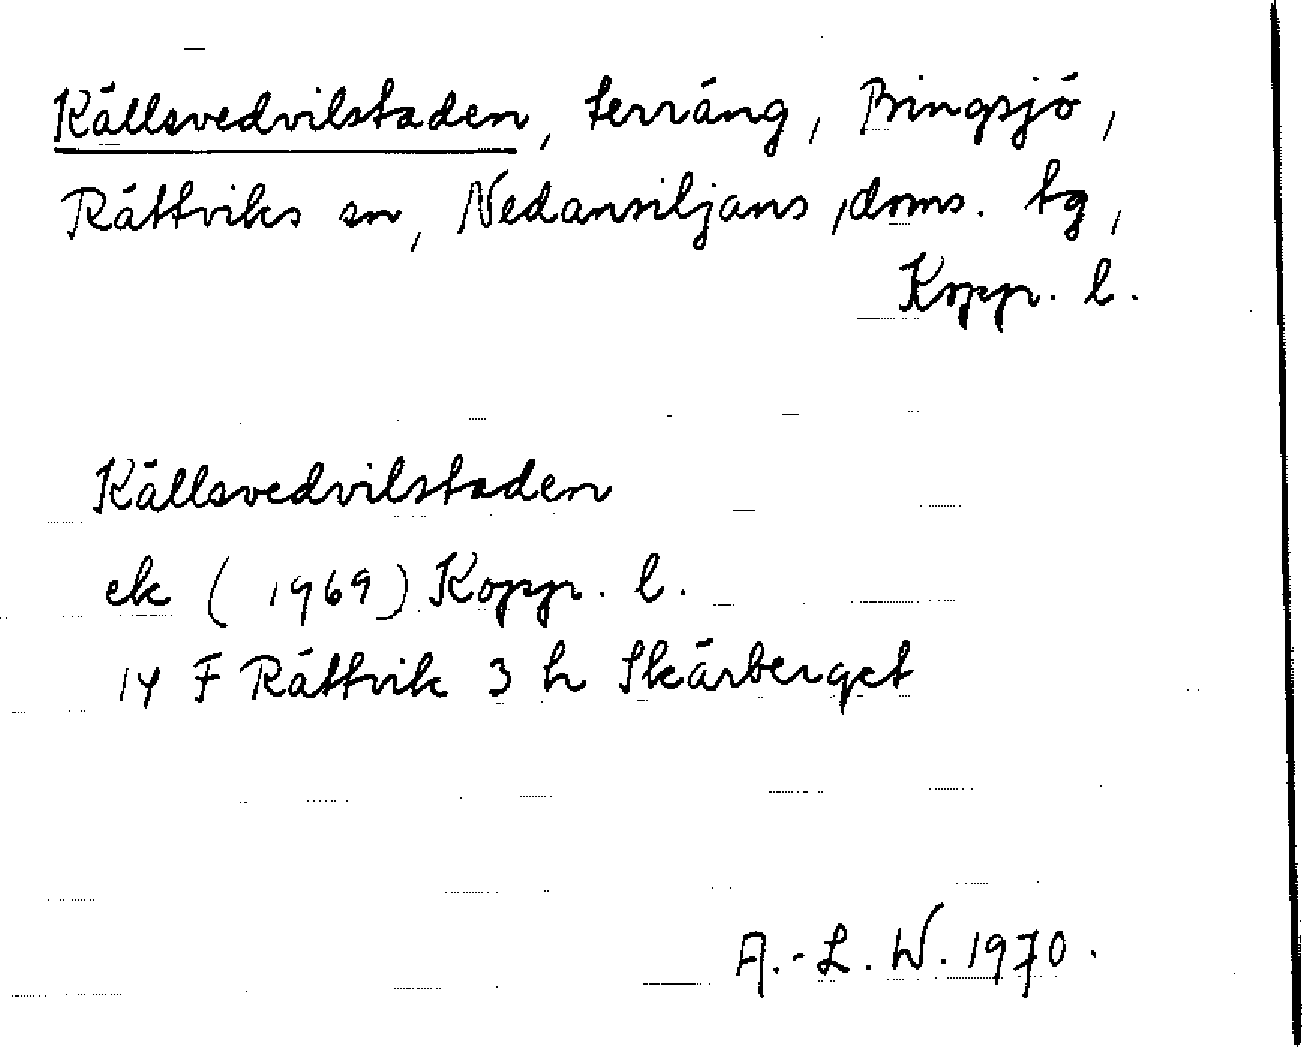 Källsvedvilstaden, terräng, Bingsjö,
Rättviks sn, Nedansiljans doms. tg,
Kopp. l.
Källsvedvilstaden
ek (1969) Kopp. l.
14 F Rättvik 3 h Skärberget
A.-L. W. 1970.